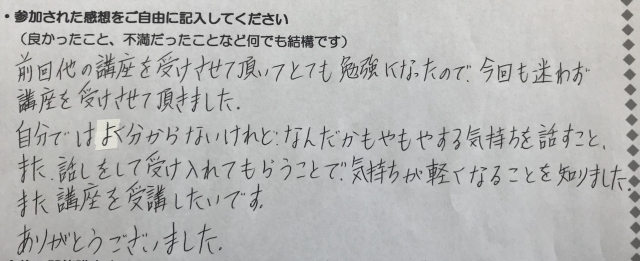 ・参加された感想をご自由に記入してください
（良かったこと、不満だったことなど何でも結構です）
前回他の講座を受けさせて頂いてとても勉強になったので、今回も迷わず
講座を受けさせて頂きました。
自分ではよく分からないけれど、なんだかもやもやする気持ちを話すこと、
また、話しをして受け入れてもらうことで、気持ちが軽くなることを知りました。
また講座を受講したいです。
ありがとうございました。